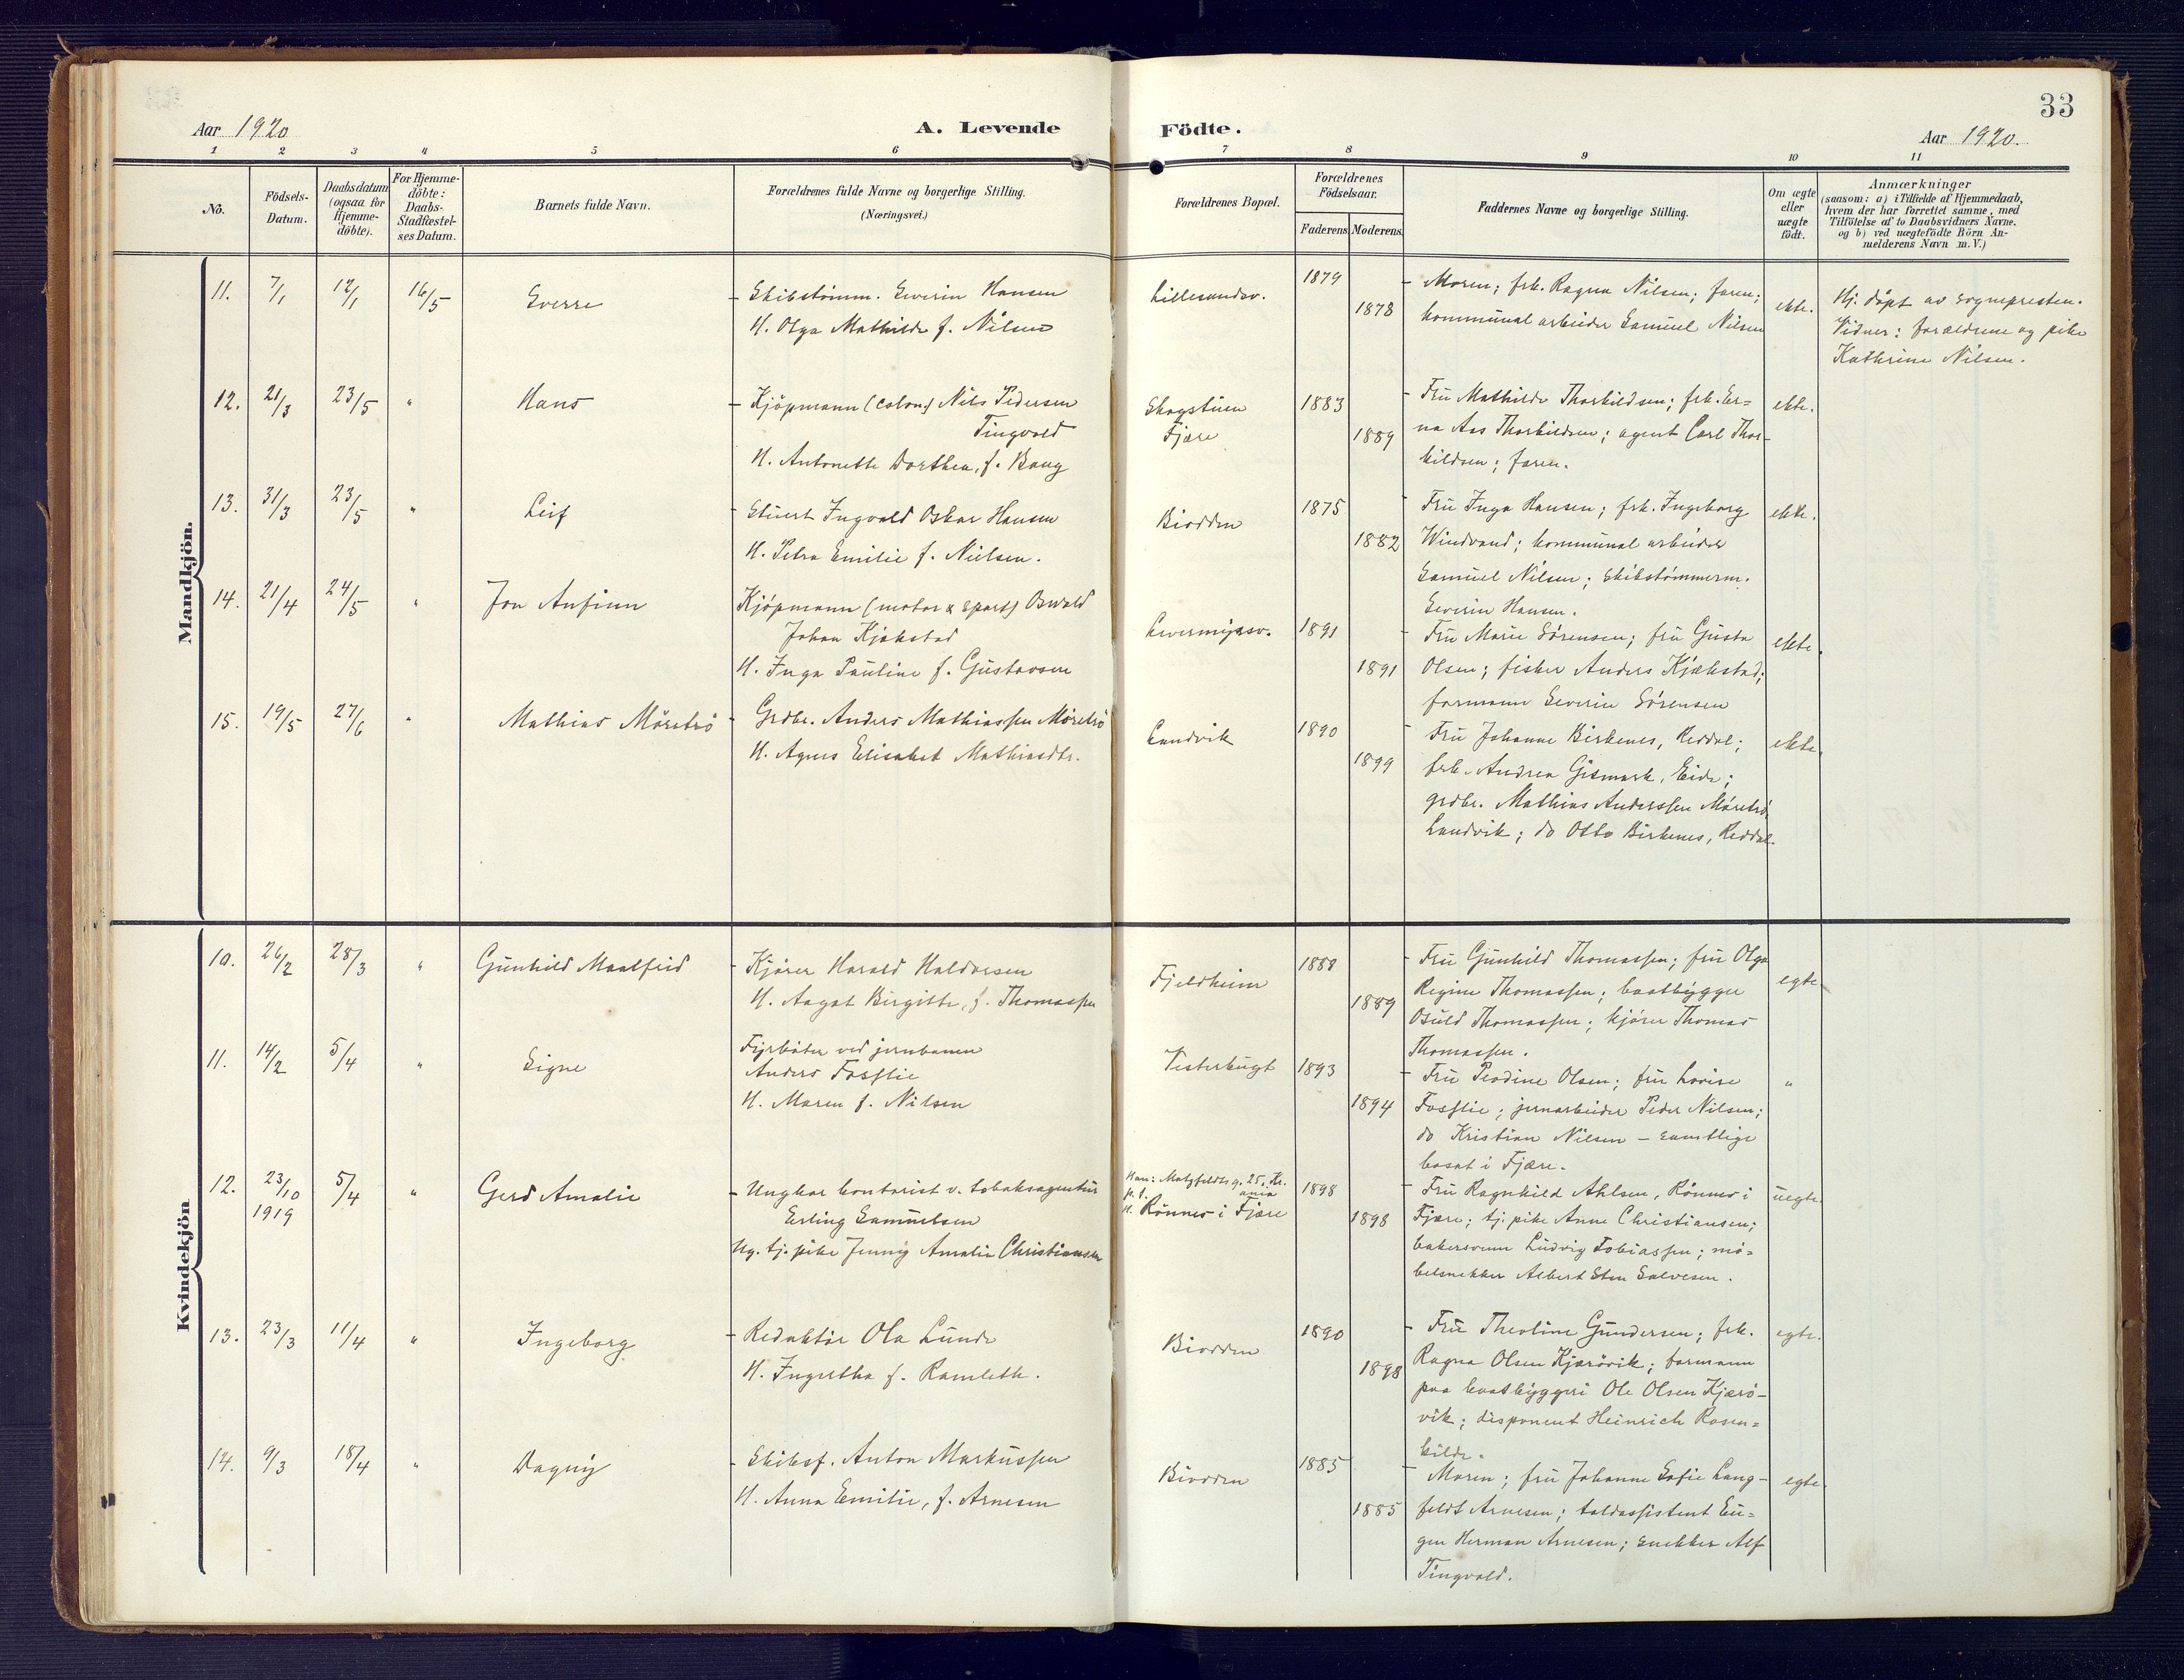 33
Aar 1920
A. Levende
Födte.
Aar 1920.
1 2 3 4 5 6 7 8 9 10 11
No.
Födsels-
Datum.
Daabsdatum
(ogsaa for
Hjemme-
döbte).
For Hjemme-
döbte:
Daabs-
Stadfæstel-
ses Datum.
Barnets fulde Navn.
Forældrenes fulde Navne og borgerlige Stilling.
(Næringsvei.)
Forældrenes Bopæl.
Forældrenes
Födselsaar.
Faderens
Moderens
Faddernes Navne og borgerlige Stilling.
Om ægte
eller
uægte
födt.
Anmærkninger
(saasom: a) i Tilfælde af Hjemmedaab,
hvem der har forrettet samme, med
Tilföielse af to Daabsvidners Navne.
og b) ved uægtefödte Börn An-
melderens Navn m. V.)
Mandkjön.
11. 7/1 12/1 16/5 Sverre
- Skibstømm. Severin Hansen
H. Olga Mathilde f. Nilsen
Lillesandsv.
1879
1878
- Moren; frk. Ragna Nilsen; faren;
kommunal arbeider Samuel Nilsen
ekte.
Hj. døpt av sognepresten.
Vidner: forældrene og pike
Kathrine Nilsen.
12. 21/3 23/5 " Hans
- Kjøpmann (colon) Nils Pedersen
Tingvold
H. Antonette Dorthea, f. Bang
Skogstuen
Fjære
1883
1889
- Fru Mathilde Thorkildsen; frk. Er=
na Aas Thorkildsen; agent Carl Thor-
kildsen; faren.
ekte.
13. 31/3 23/5 " Leif
- Stuert Ingvald Oskar Hansen
H. Petra Emilie f. Nielsen.
Biodden
1875
1882
- Fru Inga Hansen; frk. Ingeborg
Windvand; kommunal arbeider
Samuel Nilsen; skibstømmerm.
Severin Hansen.
ekte.
14. 21/4 24/5 " Jon Anfinn
Kjøpmann (motor & sport) Oswald
Johan Kjøkstad
H. Inga Pauline f. Gustavsen
Levermyrsv.
1891
1891
- Fru Marie Sørensen; fru Gusta
Olsen; fisker Anders Kjækstad;
formann Severin Sørensen
ekte.
15. 19/5 27/6 " Mathias Møretrø
- Grdbr. Anders Mathiassen Møretrø
H. Agnes Elisabet Mathiasdtr.
Landvik
1890
1899
- Fru Johanne Birkenes, Reddal;
frk. Andrea Gismark, Eide;
grdbr. Mathias Anderssen Møretrø,
Landvik; do Otto Birkenes, Reddal.
ekte.
Kvindekjön
10. 26/2 28/3 " Gunhild Maalfrid
- Kjører Harald Haldorsen
H. Aagot Birgitte, f. Thomassen
Fjeldheim
1888
1889
- Fru Gunhild Thomassen; fru Olga
Regine Thomassen; baatbygger
Osuld Thomassen; kjører Thomas
Thomassen.
egte
11. 14/2 5/4 " Signe
Fyrbøter ved jernbanen
Anders Fosslie
H. Maren f. Nilsen
Vesterbugt
1893
1894
- Fru Peodine Olsen; fru Lovise
Fosslie; jernarbeider Peder Nilsen;
do Kristian Nilsen – samtlige
bosat i Fjære.
"
12. 23/10 1919 5/4 " Gerd Amalie
- Ungkar kontorist v. tobaksagentur
Erling Samuelsen
Ug. tj. pike Jenny Amalie Christiansen
Han: Matzfeldts g. 25, Kr.
ania
p. t.
H. Rønnes i Fjære
1898
1898
- Fru Ragnhild Ahlsen, Rønnes i
Fjære; tj. pike Anne Christiansen;
bakersvenn Ludvig Tobiassen; mø=
belsnekker Albert Sten Salvesen.
uegte.
13. 23/3 11/4 " Ingeborg
- Redaktør Ola Lunde
H. Ingertha f. Ramleth.
Biodden
1890
1898
- Fru Theoline Gundersen; frk.
Ragna Olsen Kjærøvik; formann
paa baatbyggeri Ole Olsen Kjærø-
vik; disponent Heinrich Rosen=
kilde.
egte.
14. 9/3 18/4 " Dagny
- Skibsf. Anton Markussen
H. Anna Emilie, f. Arnesen
Biodden
1885
1885
- Moren; fru Johanne Sofie Lang-
feldt Arnesen; toldassistent Eu=
gen Herman Arnesen; snekker Alf
Tingvold.
egte.